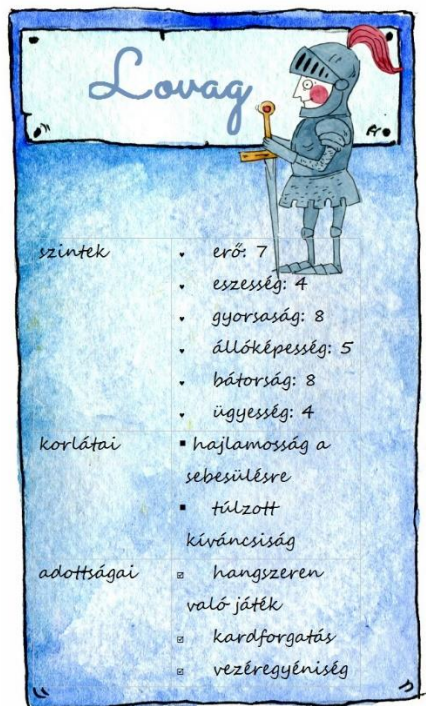 Lovag
szintek ♥ erő: 7
♥ eszesség: 4
♥ gyorsaság: 8
♥ állóképesség: 5
♥ bátorság: 8
♥ ügyesség: 4
korlátai ▪ hajlamosság a
sebesülésre
▪ túlzott
kíváncsiság
adottságai ☑ hangszeren
való játék
☑ kardforgatás
☑ vezéregyéniség